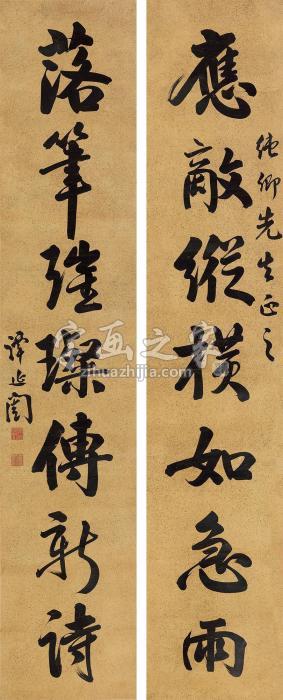 應敵縱橫如急雨
卿先生正之
落筆璀璨傳新詩
譚延闓
字画之家
zihuazhijia.com